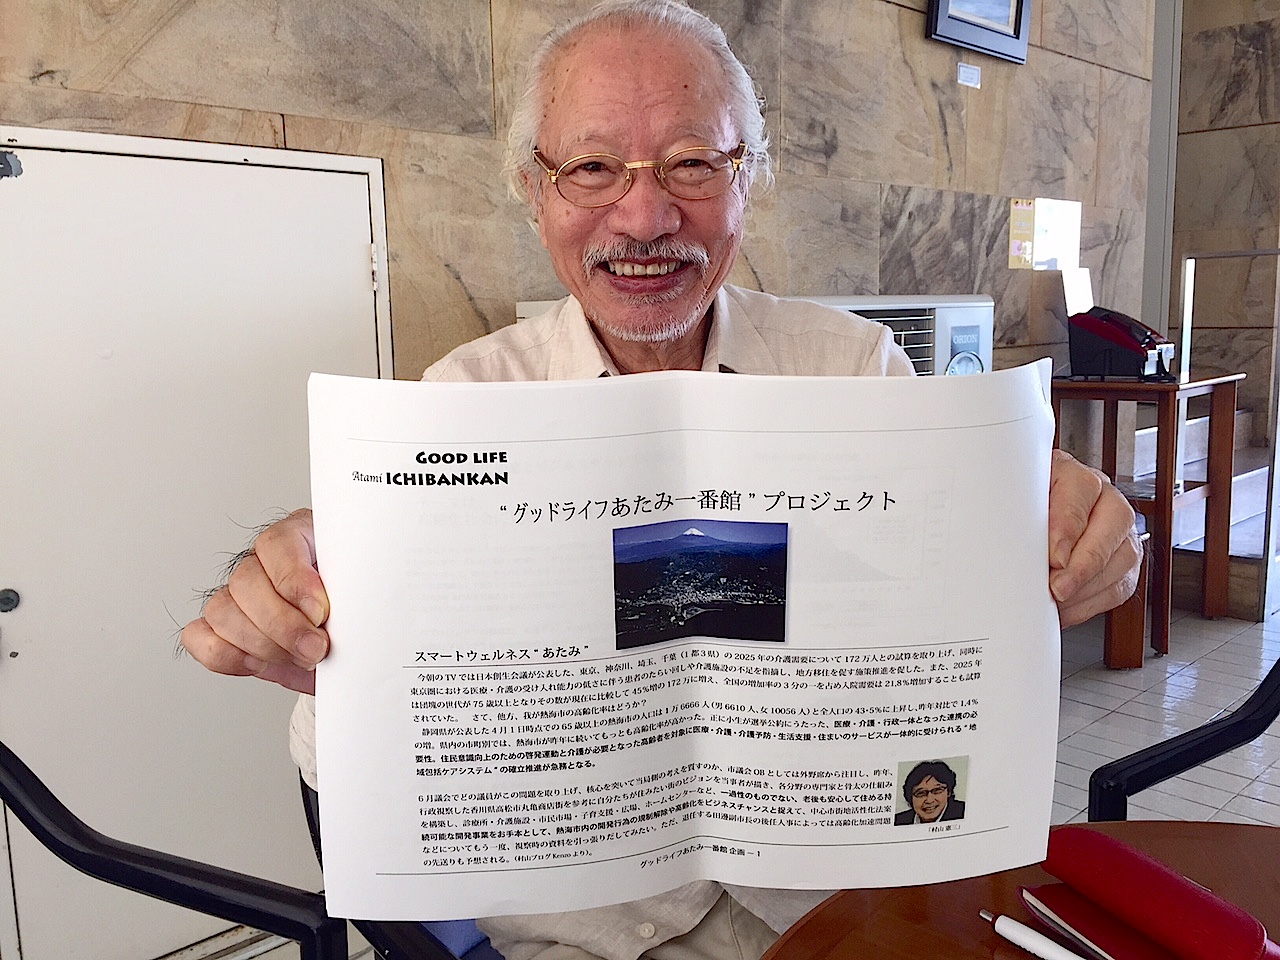 GOOD LIFE
Atami ICHIBANKAN
“グッドライフあたみ一番館”プロジェクト
スマートウェルネス“あたみ”
今朝のTVでは日本創生会議が公表した、東京、神奈川、埼玉、千葉（1都3県）の2025年の介護需要について172万人との試算を取り上げ、同時に
東京圏における医療・介護の受け入れ能力の低さに伴う患者のたらい回しや介護施設の不足を指摘し、地方移住を促す施策推進を促した。また、2025年
は団塊の世代が75歳以上となりその数が現在に比較して45%増の172万に増え、全国の増加率の3分の一を占め入院需要は21.8%増加することも試算
されていた。 さて、他方、我が熱海市の高齢化率はどうか？
静岡県が公表した4月1日時点での65歳以上の熱海市の人口は1万6666人（男6610人、女10056人）と全人口の43・5%に上昇し、昨年対比で1.4%
の増。県内の市町別では、熱海市が昨年に続いてもっとも高齢化率が高かった。正に小生が選挙公約にうたった、医療・介護・行政一体となった連携の必
要性。住民意識向上のための啓発運動と介護が必要となった高齢者を対象に医療・介護・介護予防・生活支援・住まいのサービスが一体的に受けられる“地
域包括ケアシステム”の確立推進が急務となる。
6月議会でどの議員がこの問題を取り上げ、核心を突いて当局側の考えを質すのか、市議会OBとしては外野席から注目し、昨年、
行政視察した香川県高松市丸亀商店街を参考に自分たちが住みたい街のビジョンを当事者が描き、各分野の専門家と骨太の仕組み
を構築し、診療所・介護施設・市民市場・子育て支援・広場、ホームセンターなど、一過性のものでない、老後も安心して住める持
続可能な開発事業をお手本として、熱海市内の開発行為の規制解除や高齢化をビジネスチャンスと捉えて、中心市街地活性化法案
などについてもう一度、視察時の資料を引っ張りだしてみたい。ただ、退任する田邊副市長の後任人事によっては高齢化加速問題
の先送りも予想される。（村山ブログKenzoより）。
「村山 憲三」
グッドライフあたみ一番館 企画 − 1
ORION